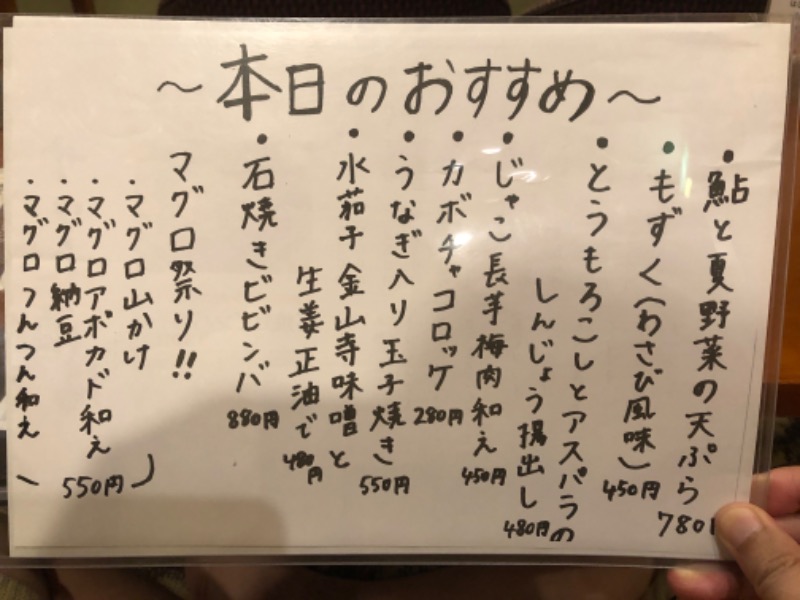 ～本日のおすすめ～
・鮎と夏野菜の天ぷら
780円
・もずく(わさび風味)
450円
・とうもろこしとアスパラの
しんじょう揚出し
480円
・じゃこ長芋梅肉和え
450円
・カボチャコロッケ
280円
・うなぎ入り玉子焼き
550円
・水茄子 金山寺味噌と
生姜正油で
480円
・石焼きビビンバ
880円
マグロ祭り!!
・マグロ山かけ
・マグロアボカド和え
・マグロ納豆
・マグロつんつん和え
(550円)